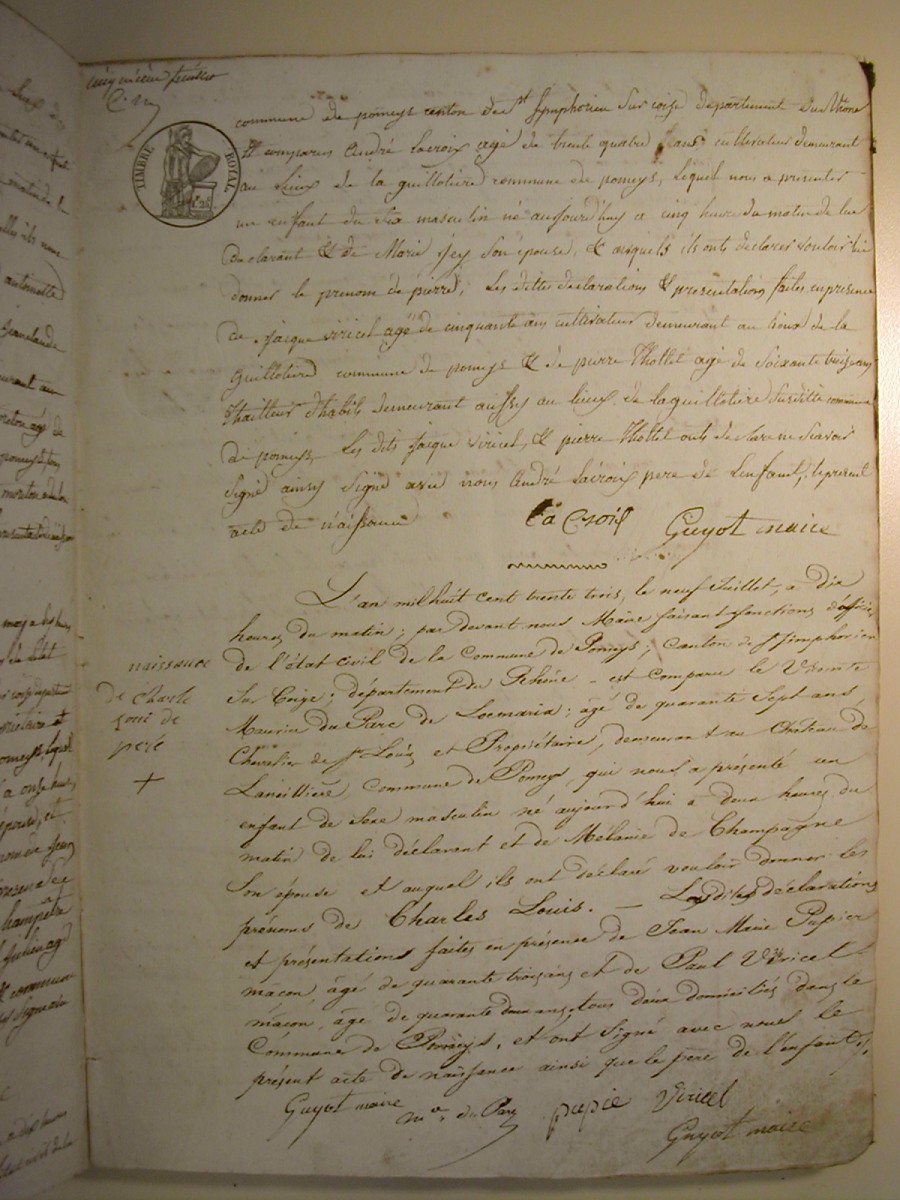 TIMBRE ROYAL
commune de pomeys canton de St Symphorien Sur coise département du Rhone
Et comparus André Lacroix agé de trente quatre ans cultivateur demeurant
au Lieux de la guillotiere commune de pomeys, Lequel nous a presenter
un enfant du Sex masculin né aujourd'huy a cinq heure du matin de lui
declarant & de Marie jey Son épouse, & auquels ils onts declarer vouloir lui
donner le prenom de pierre; Les dittes declarations & presentations faites en presence
de jacque viricel agé de cinquante ans cultivateur demeurant au lieux de la
guillotiere commune de pomeys & de pierre thollet agé de Soixante ans
thailleur d'habits demeurant aussy au lieux de la guillotiere Susditte commune
de pomeys, Les dits jacque viricel, & pierre thollet onts declare ne Scavoir
Signé ainsy Signé avec nous André Lacroix pere de Lenfant, le present
acte de naissance
La Croix Guyot maire
L'an mil huit cent trente trois, le neuf Juillet, à dix
heures du matin; par devant nous Maire faisant fonctions d'officier
de l'état civil de la Commune de Pomeys; canton de St Simphorien
Sur Coige; département du Rhône - est comparu le Vicomte
naissance
de charle
Loui de
peré
+
Maurin du Parc de Locmaria; âgé de quarante Sept ans,
Chevalier de St Louis et Propriétaire, demeurant au Château de
Lancillière, commune de Pomeys, qui nous a présenté un
enfant de Sexe masculin né aujourd'hui à deux heures du
matin de lui déclarant et de Mélanie de Champagne
Son épouse et auquel ils ont déclaré vouloir donner les
prénoms de Charles Louis. — Lesdites déclarations
et présentations faites en présence de Jean Marie Pupier
maçon, âgé de quarante trois ans et de Paul Viricel
maçon, âgé de quarante deux ans, tous deux domiciliés dans la
Commune de Pomeys, et ont Signé avec nous le
présent acte de naissance ainsi que le père de l'enfant
Guyot maire du Parc pupie Viricel
Guyot maire